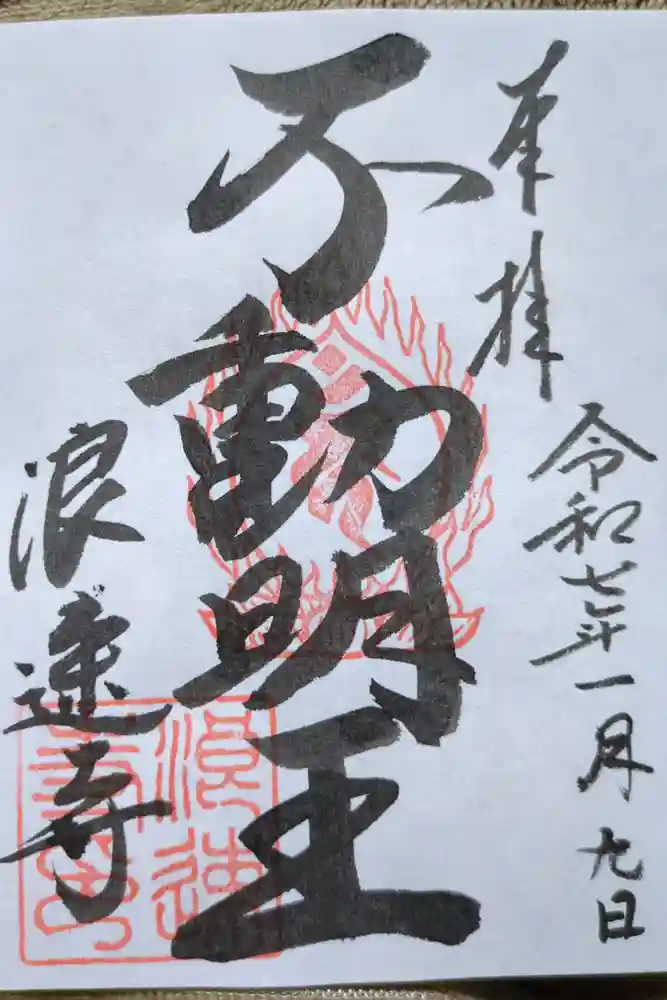 奉拝
令和七年一月九日
不動明王
浪速寺
浪速
寺印